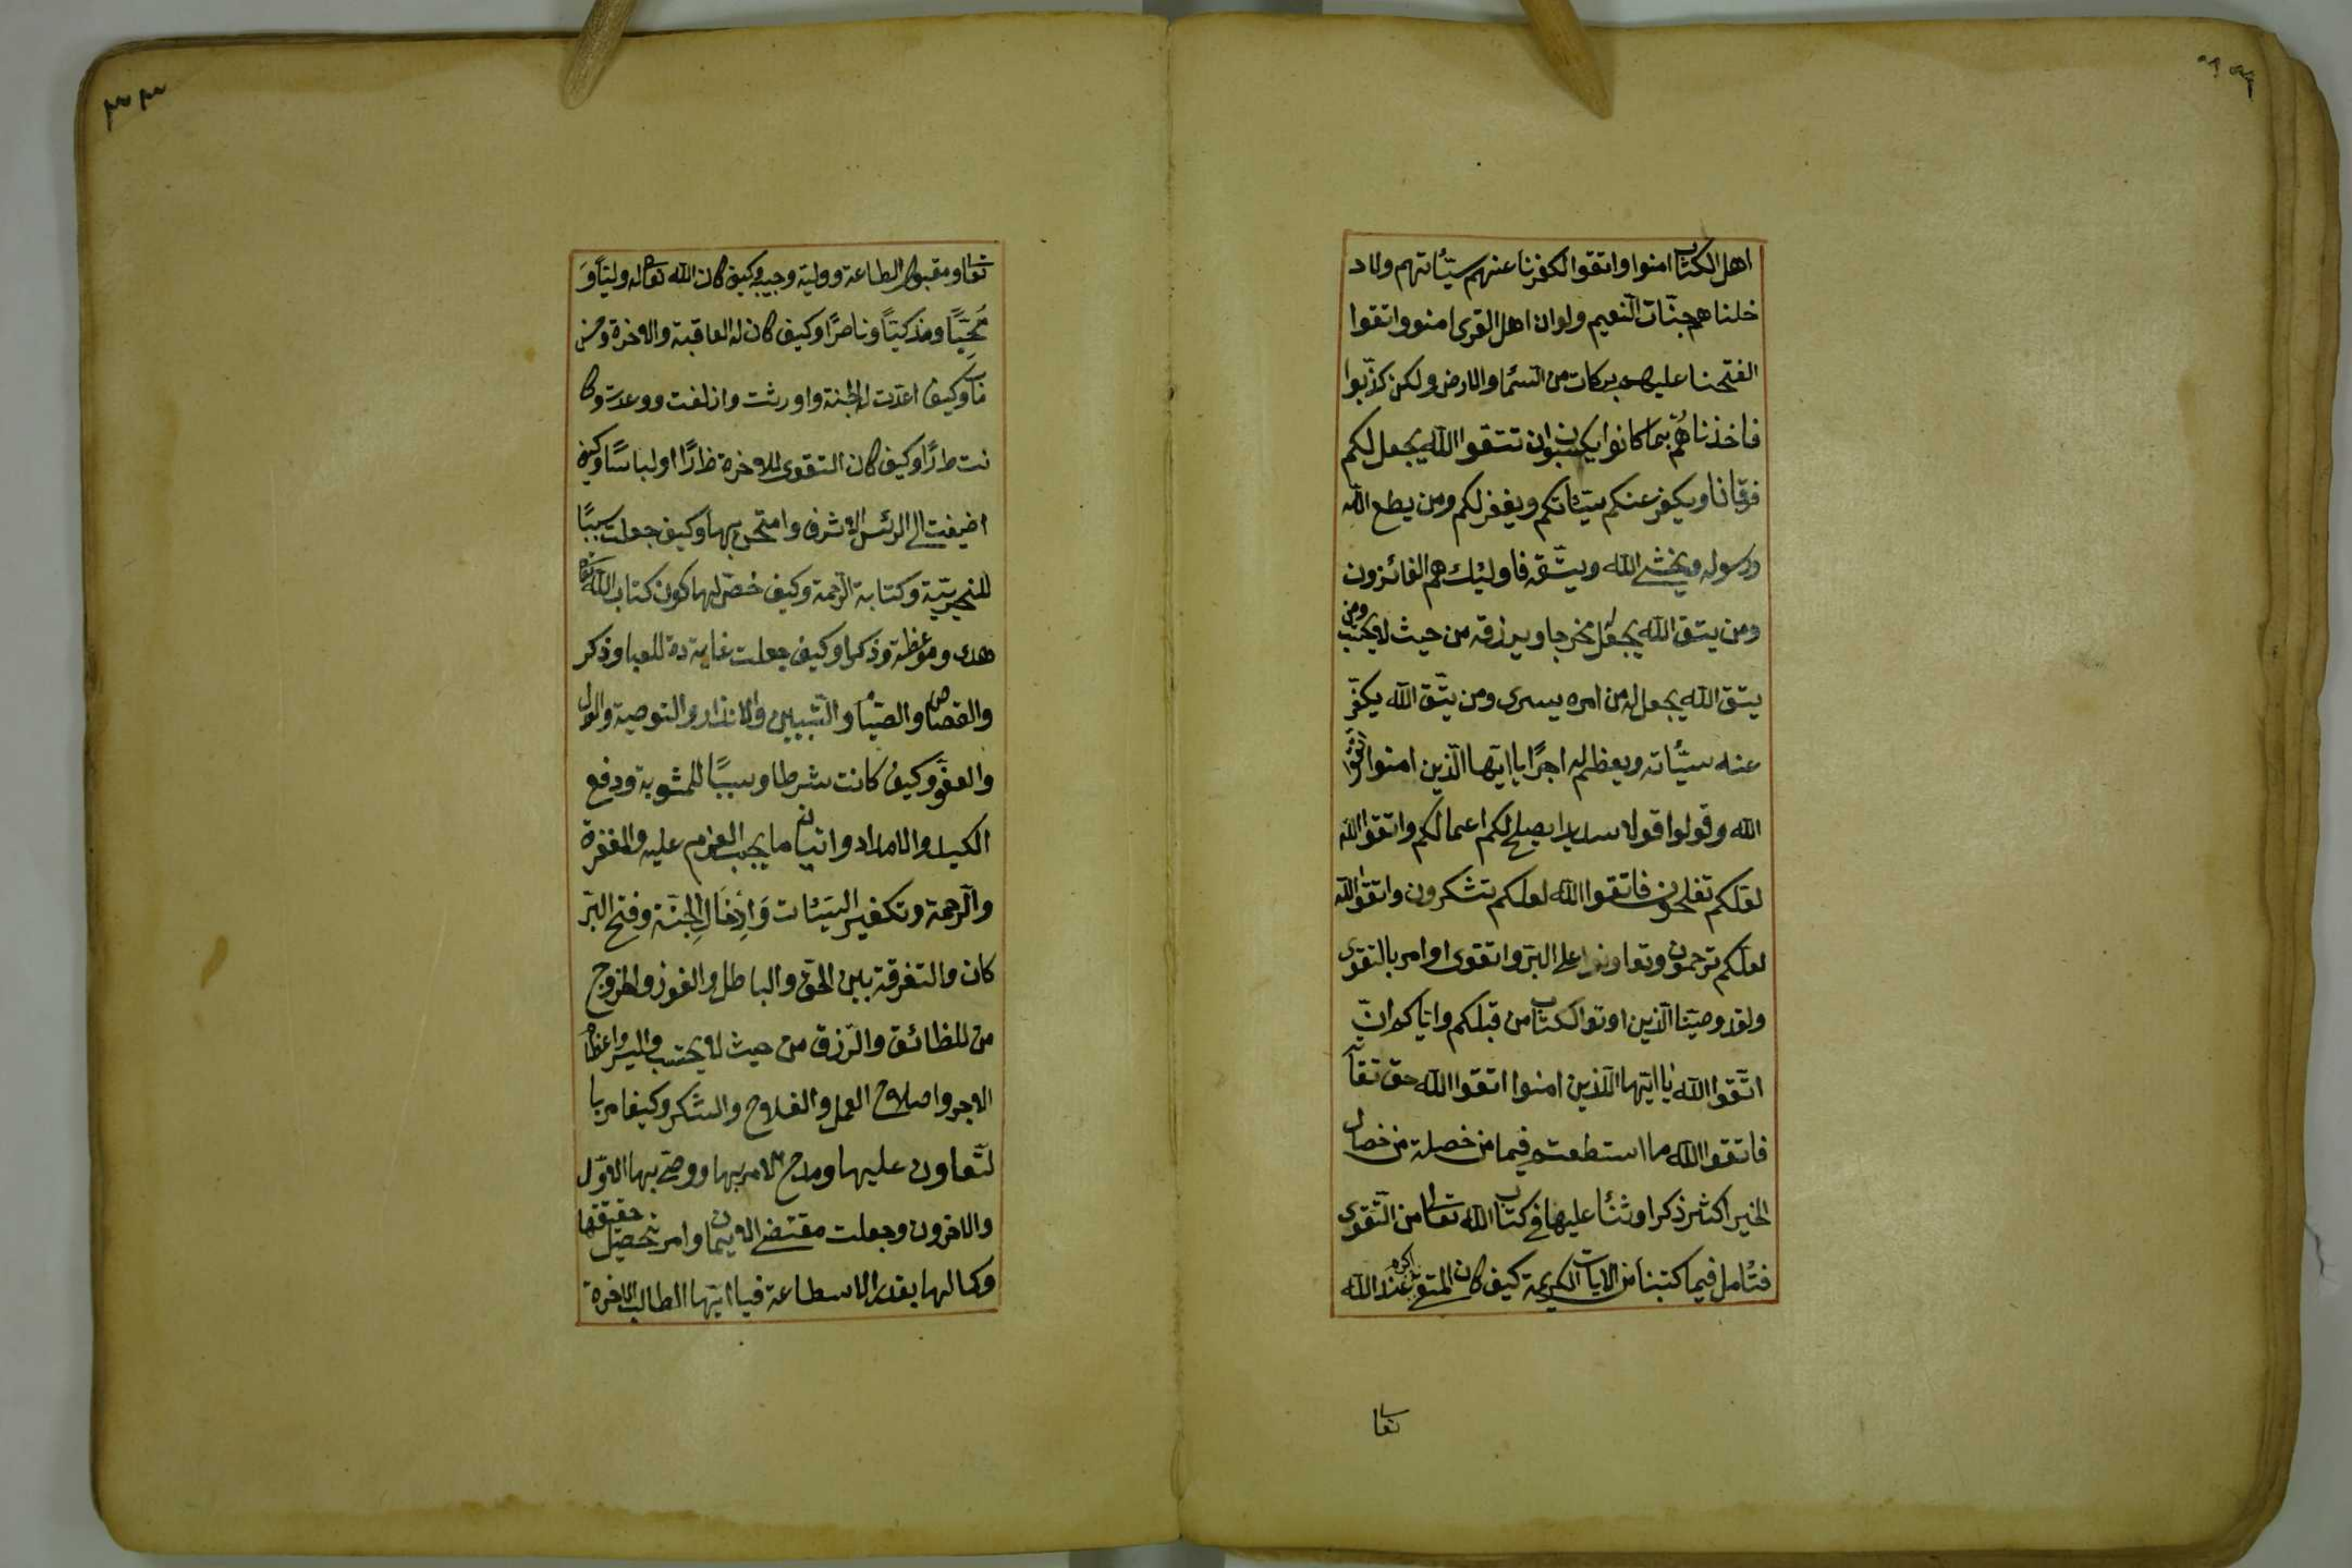 اهل الكتاب امنوا واتقوا لكفرنا عنهم سيّئاتهم ولاد
خلناهم جنّات النّعيم ولو ان اهل القرى امنوو اتقوا
الفتحنا عليهم بركات من السّما والارض ولكن كذّبوا
فاخذناهُم بما كانوا يكسبون ان تتقوا الله يجعل لكم
فرقانا ويكفر عنكم سيّئاتكم ويغفر لكم ومن يطع الله
ورسوله ويخشى الله ويتّقه فاولئك هم الفائزون
ومن يتق الله يجعل له مخرجا ويرزقه من حيث لا يحتسب ومن
يتق الله يجعل له من امره يسرى ومن يتّق الله يكفّر
عنه سيّئاته ويعظم له اجرًا يا ايّها الّذين امنوا اتقوا
الله وقولوا قولا سديدا يصلح لكم اعمالكم واتقوا الله
لعلّكم تفلحون فاتقوا الله لعلكم تشكرون واتقوا الله
لعلّكم ترحمون وتعاونوا على البرّ واتقوى او امر بالتقوى
ولقد وصّينا الّذين اوتو الكتاب من قبلكم وايّاكم ان
اتّقوا الله يا ايّها الّذين امنوا اتقوا الله حق تقاته
فاتقوا الله ما استطعتم فيما من خصلة من خصال
الخير اكثر ذكرا وثنأ عليها في كتاب الله تعالى من التّقوى
فتأمل فيما كتبنا من الايات الكريمة كيف كان المتقى اكرم عند الله
تعا
تعا ومقبول الطاعة ووليّه وحبيبه وكيف كان الله تعالى له وليّاً وَ
مُحبّاً ومذكيّاً وناصرًا وكيف كان له العاقبة والاخرة وحسن
مأب وكيف اعدّت له الجنة واورثت وازلفت ووعدت وكا
نت دارًا وكيف كان التقوى للاخرة دارًا ولباسًا وكيف
اضيفت الى الرئس الاشرف وامتحن بها وكيف جعلت سببًا
هدى وموعظة وذكرا وكيف جعلت غاية للعبا وذكر
والقصاص والصّيام والتّبيين والانذار والتوصية والعدل
والعفوَ وكيف كانت شرطا وسببًا للمثوبة ودفع
الكيد والامداد واتيان ما يجب العزم عليه والمغفرة
والرّحمة وتكفير السّيئات وَاِدْخَالِ الجنّة وفتح البر
كات والتفرقة بين الحق والباطل والفوز والخروج
من المضائق والرّزق من حيث لا يحتسب واليسر واعظام
الاجر واصلاح العمل والفلاح والشّكر وكيف امر با
لتّعاون عليها ومدح الامر بها ووصّى بها الاوّل
والاخرون وجعلت مقتضى الايمان وامر بتحصيل حقيقتها
وكمالها بقدر الاسطاعة فيا ايّها الطالب الاخرة